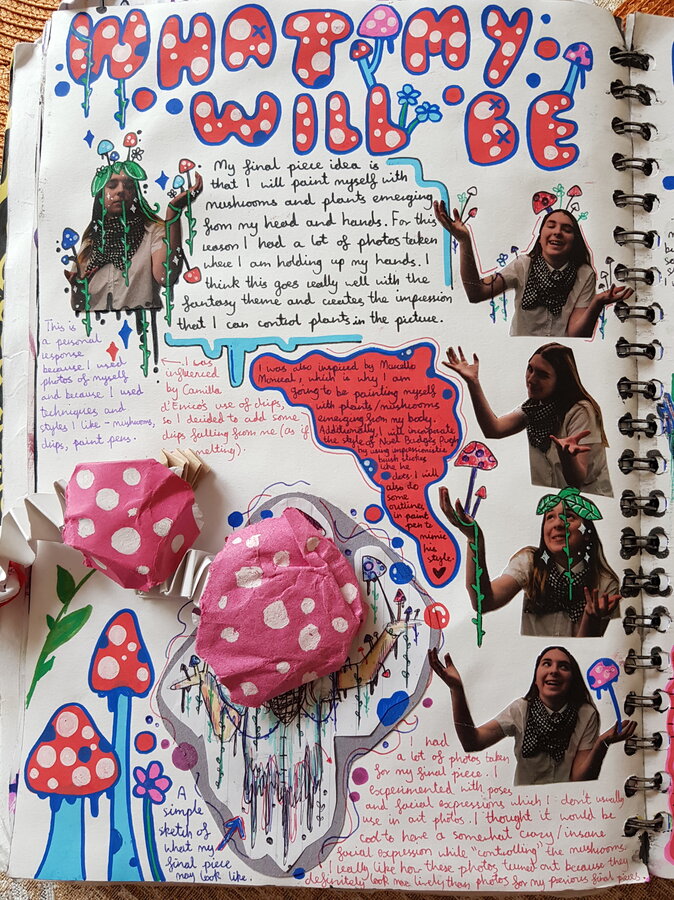 WHAT MY
WILL BE
My final piece idea is
that I will paint myself with
mushrooms and plants emerging
from my head and hands. For this
reason I had a lot of photos taken
where I am holding up my hands. I
think this goes really well with the
fantasy theme and creates the impression
that I can control plants in the picture.
This is
a personal
response
because I used
photos of myself
and because I used
techniques and
styles I like - mushrooms,
drips, paint pens.
I was
influenced
by Camilla
d'Errico's use of drips,
so I decided to add some
drips falling from me (as if
melting).
I was also inspired by Marcello
which is why I am
going to be painting myself
with plants/mushrooms
emerging from my body.
Additionally I will incorporate
the style of Noel Badges Pugh
by using impressionistic
brush strokes
like he
does. I will
also do
some
outlines
in paint
pen to
mimic
his
style.
A
simple
sketch of
what my
final piece
may look like.
I had
a lot of photos taken
for my final piece. I
experimented with poses
and facial expressions which I don't usually
use in art photos. I thought it would be
cool to have a somewhat crazy/insane
facial expression while "controlling" the mushrooms.
I really like how these photos turned out because they
definitely look more lively than photos for my previous final pieces.